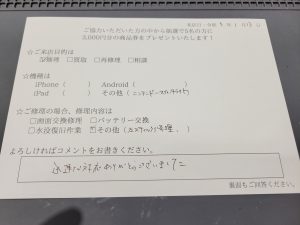 ご協力いただいた方の中から抽選で5名の方に
3,000円分の商品券をプレゼントいたします！
☆ご来店目的は
☑修理　□買取　□再修理　□相談
☆機種は
iPhone（　　　）　Android（　　　）
iPad（　　　）　その他（ニンテンドースイッチライト）
☆ご修理の場合、修理内容は
□画面交換修理　□バッテリー交換
□水没復旧作業　☑その他（スティック修理、）
よろしければコメントをお書きください。
迅速な対応ありがとうございました
裏面もご回答ください。